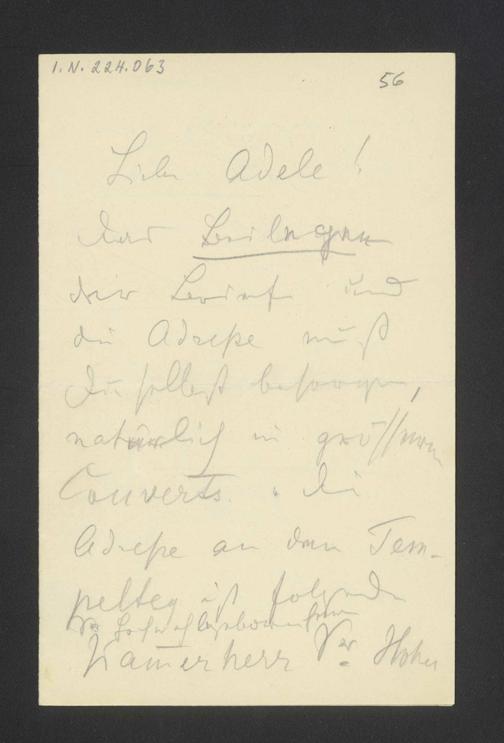 I.N. 224.063
56
Liebe Adele!
Das Beilegen
der Brief und
die Adreße mußt
Du selbst besorgen,
natürlich in größeren
Couverts. Die
Adreße an den Tem-
peltey ist folgende
Sr Hochwohlgeboren Herrn
Kamerherr Vor Hohen